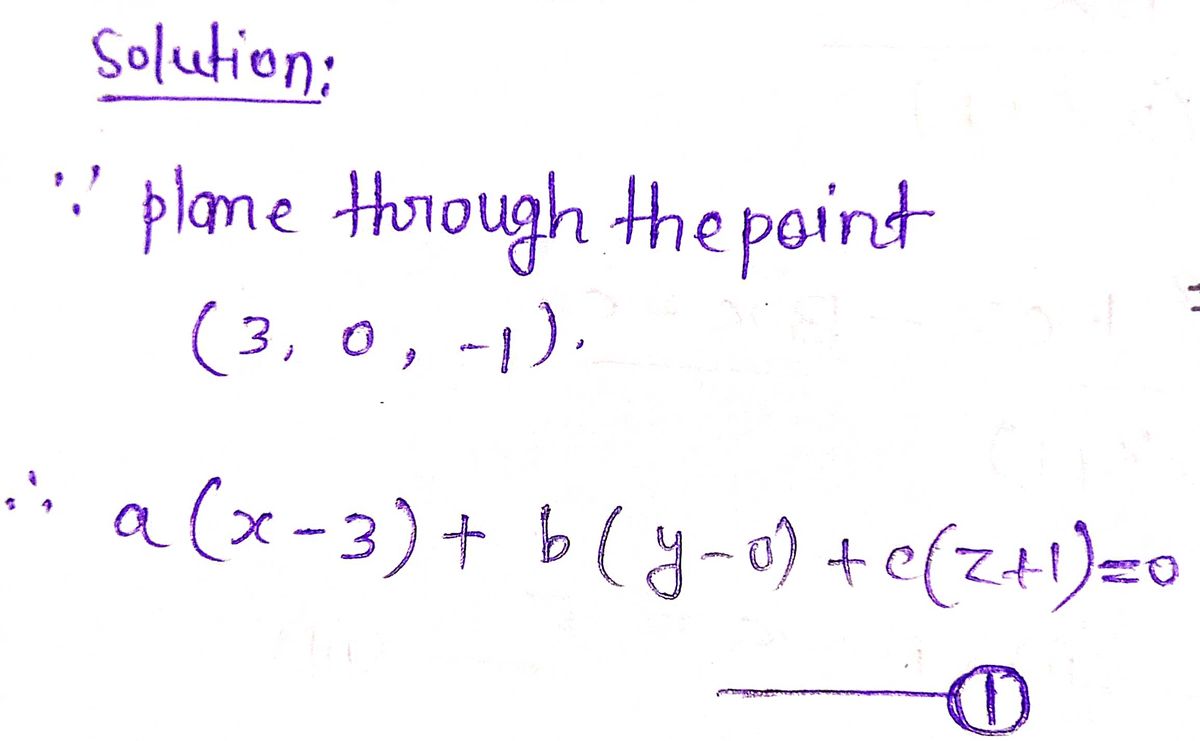 Solution:
∵ plane through the point
(3, 0, -1).
∴ a(x-3) + b(y-0) + c(z+1)=0
①